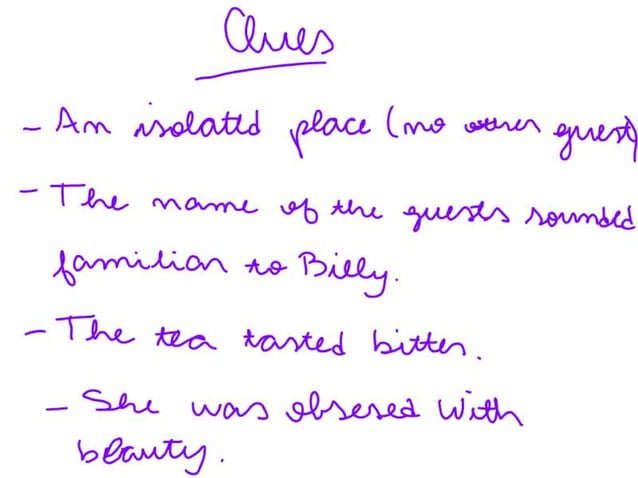 Clues
- An isolated place (no other guest)
- The name of the guests sounded
familiar to Billy.
- The tea tasted bitter.
- She was obsesed with
beauty.